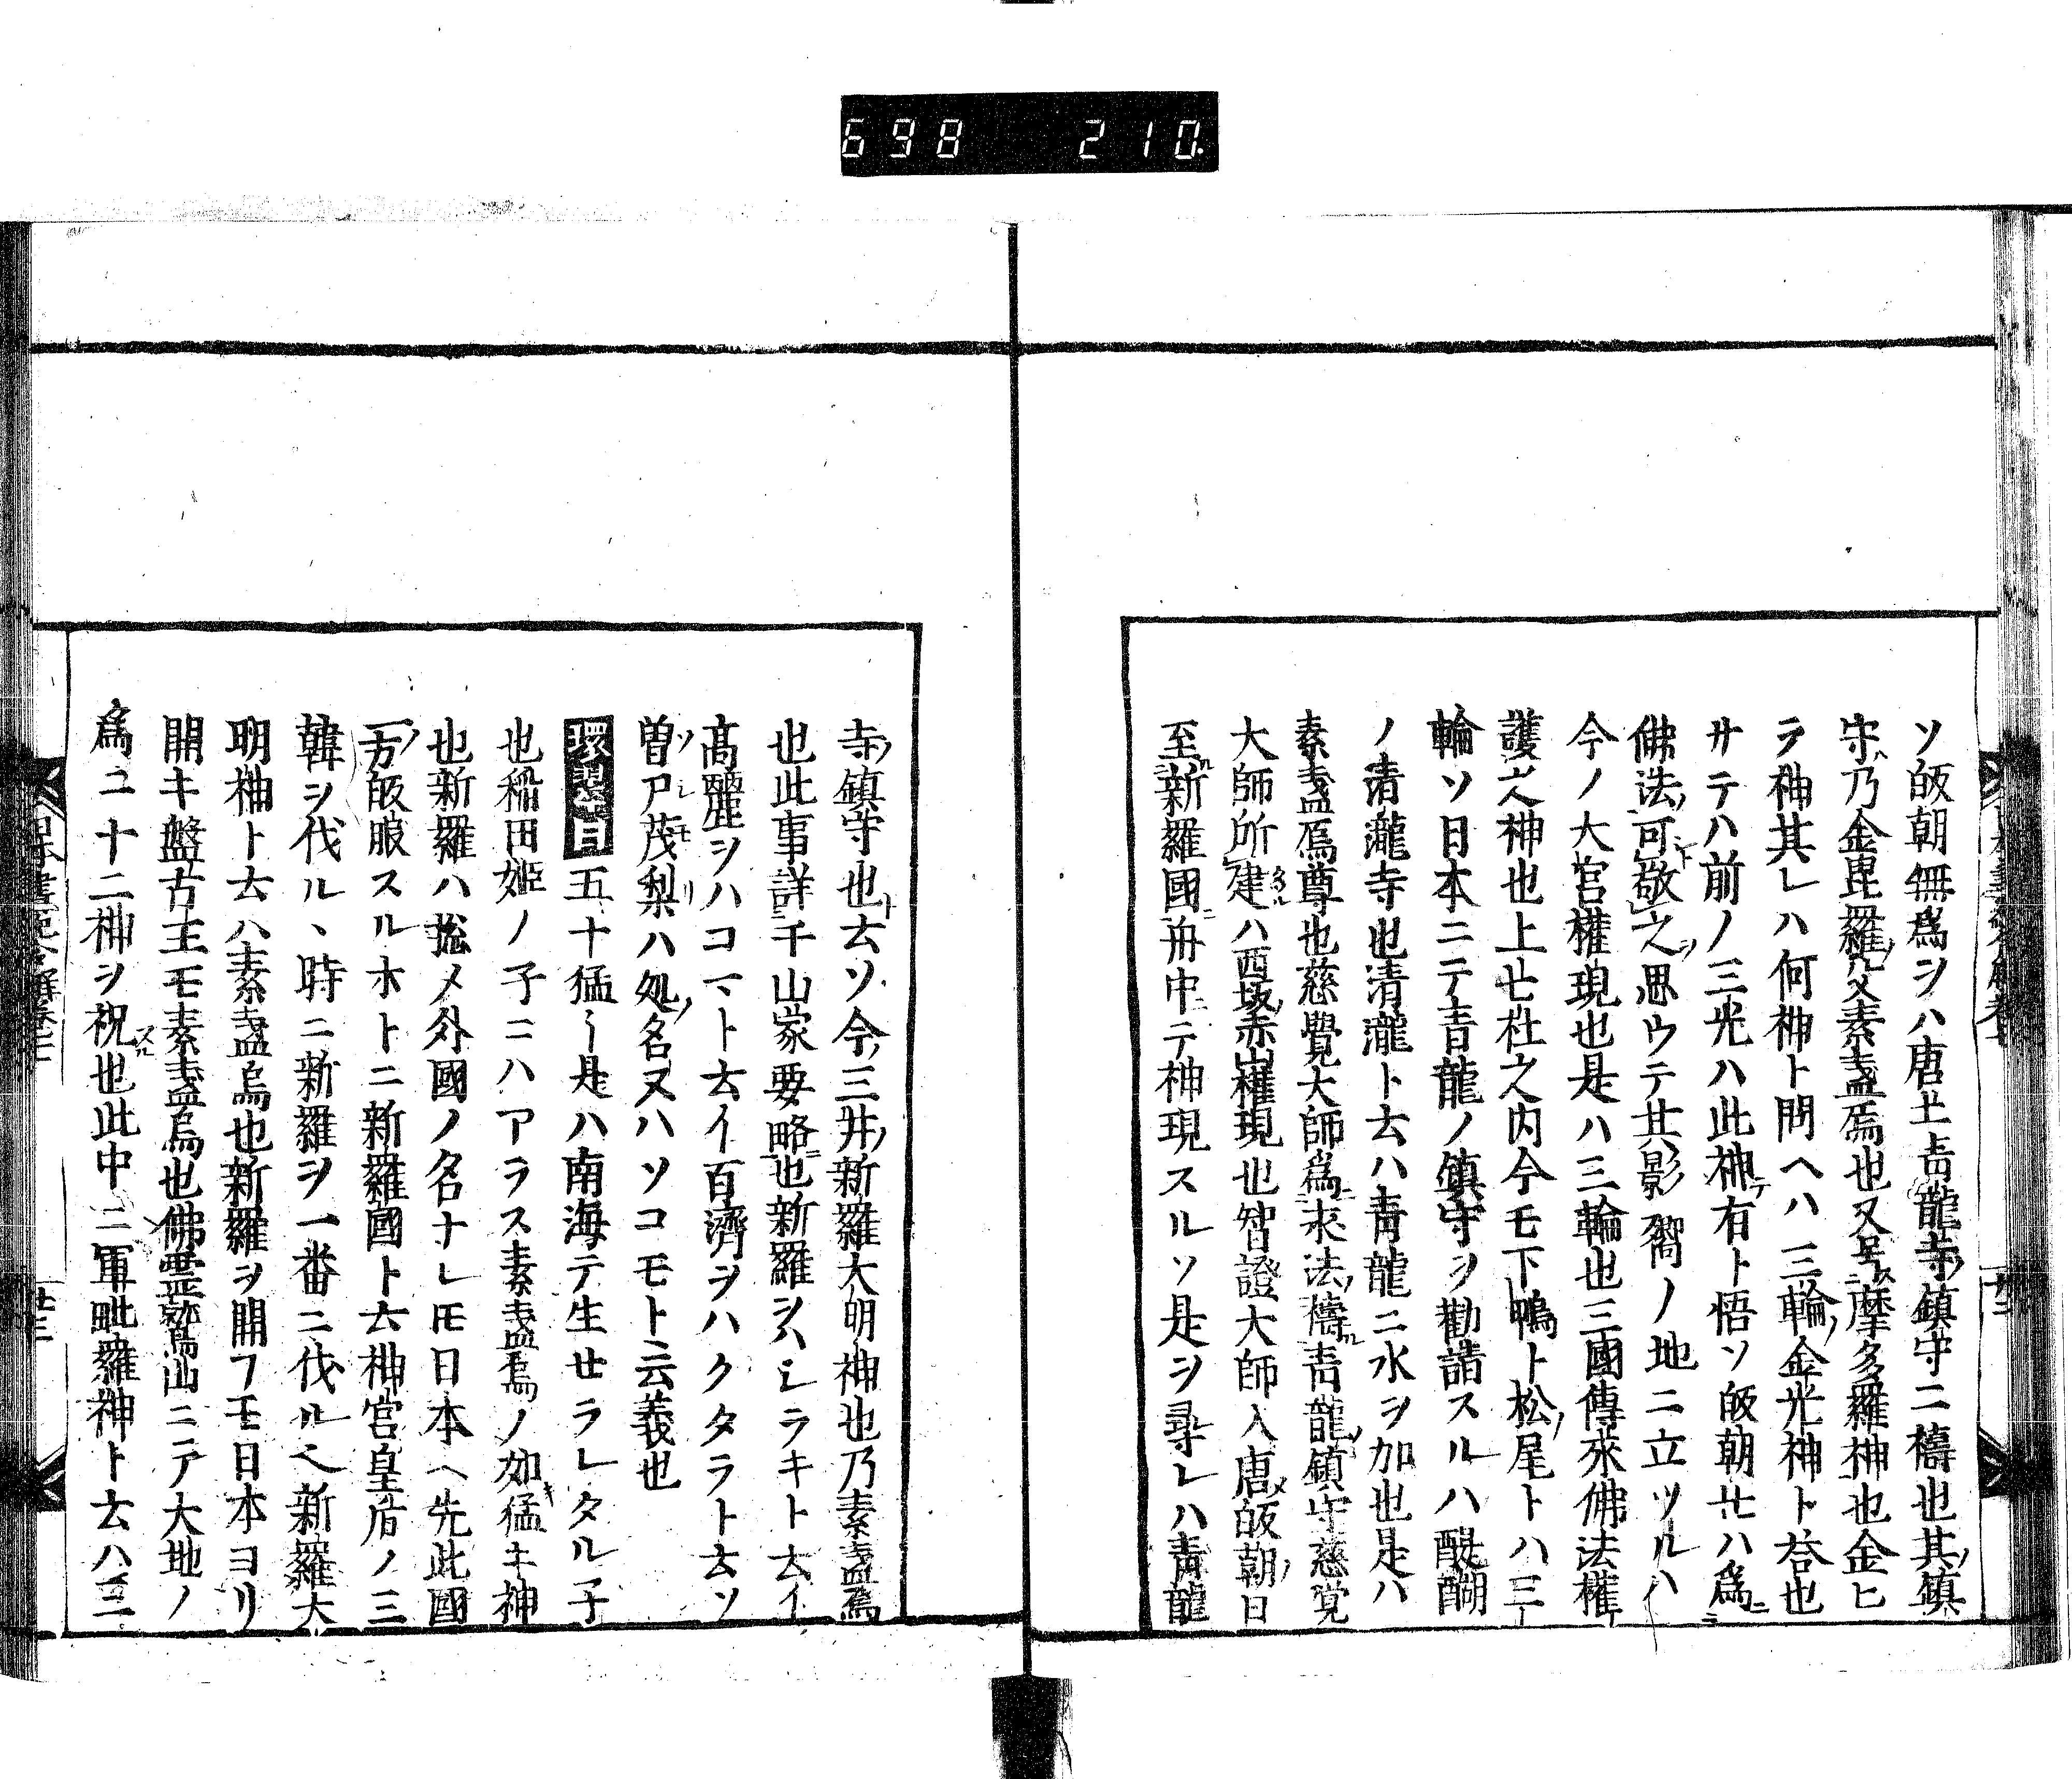 698 210
ソ皈朝無爲ヲハ唐土青龍寺鎮守ニ禱也其鎮
守乃金毘羅又素盞烏也又号摩多羅神也金ヒ
ラ神其レハ何神ト問ヘハ三輪金光神ト荅也
サテハ前ノ三光ハ此神有ト悟ソ皈朝セハ爲
佛法可敬之思ウテ其影嚮ノ地ニ立ツルハ
今ノ大宮權現也是ハ三輪也三國傳來佛法權
護之神也上七社之内今モ下鴨ト松尾トハ三
輪ソ日本ニテ青龍ノ鎮守ヲ勸請スルハ醍醐
ノ清瀧寺也清瀧ト云ハ青龍ニ水ヲ加也是ハ
素盞烏尊也慈覺大師爲求法禱青龍鎮守慈覚
大師所建ハ西坂赤山權現也智證大師入唐皈朝日
至新羅國舟中テ神現スルソ是ヲ尋レハ青龍
寺鎮守也云ソ今三井新羅大明神也乃素盞烏
也此事詳千山家要略也新羅ヲハシラキト云イ
高麗ヲハコマト云イ百濟ヲハクタラト云ソ
曽尸茂梨ハ処名又ハソコモト云義也
環翠曰五十猛ー是ハ南海テ生セラレタル子
也稲田姫ノ子ニハアラス素盞烏ノ如猛キ神
也新羅ハ捴メ外國ノ名ナレモ日本ヘ先此國
一方皈服スルホトニ新羅國ト云神宮皇后ノ三
韓ヲ伐ル丶時ニ新羅ヲ一番ニ伐ル新羅大
明神ト云ハ素盞烏也新羅ヲ開フモ日本ヨリ
開キ盤古王モ素盞烏也佛霊鷲山ニテ大地ノ
爲ニ十二神ヲ祝也此中ニ軍毗羅神ト云ハ三